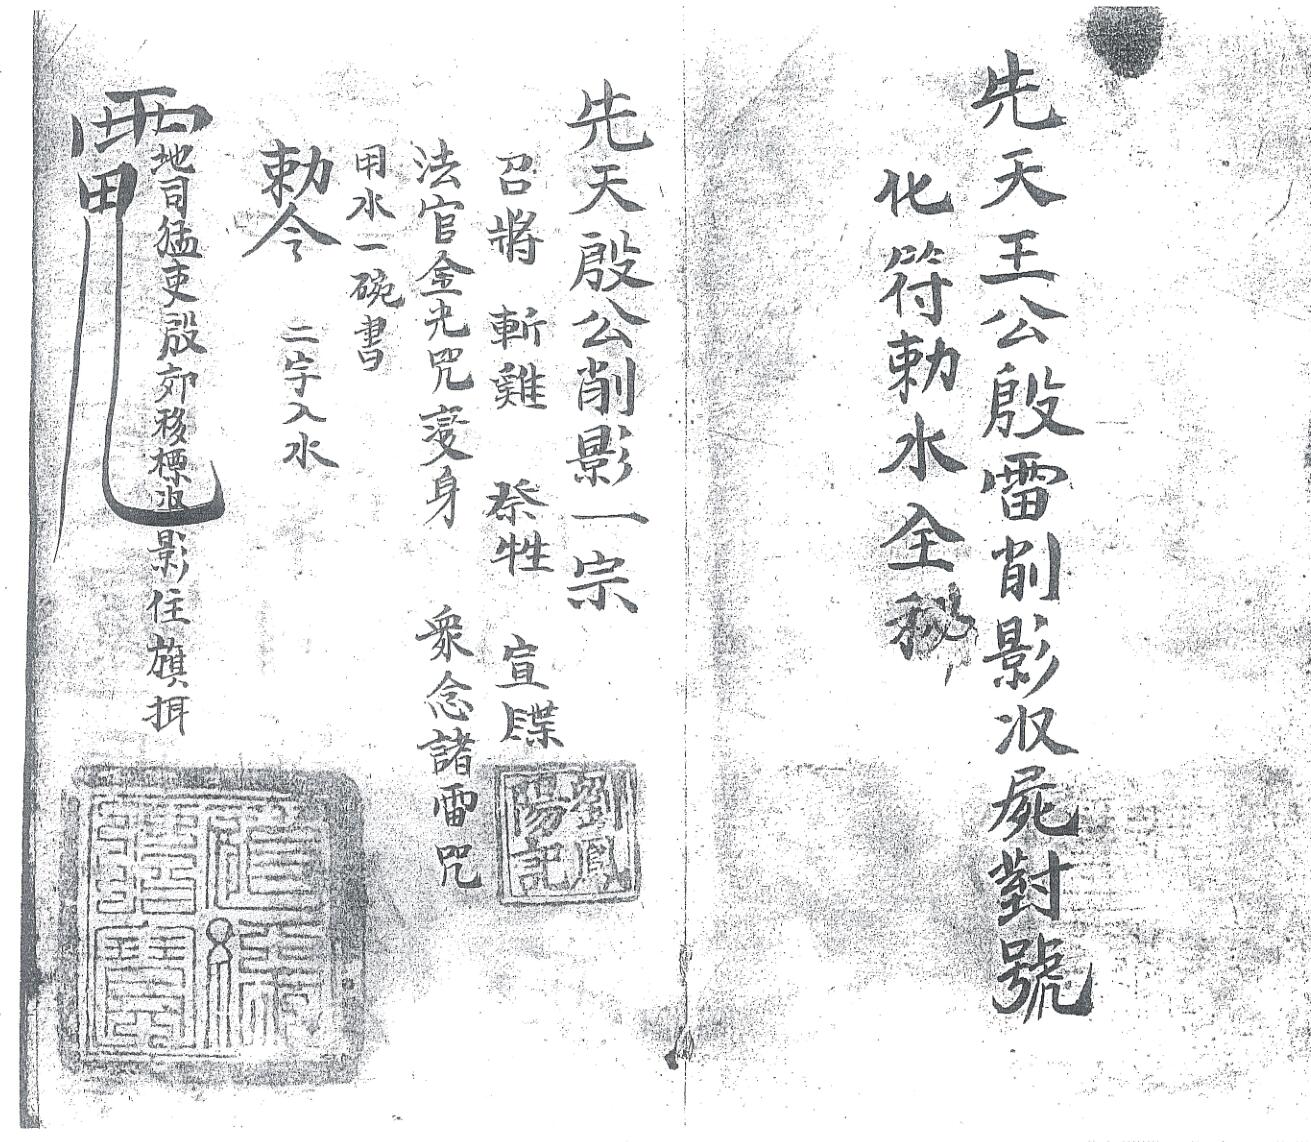 先天王公殷雷削影収屍對號
化符勅水全秘
先天殷公削影一宗
召將 斬雞 祭牲 宣牒
法官金光咒变身 衆念諸雷咒
用水一碗書
勅令 二字入水
地司猛吏殷郊移標収影住旗捐
劉鳳
陽記